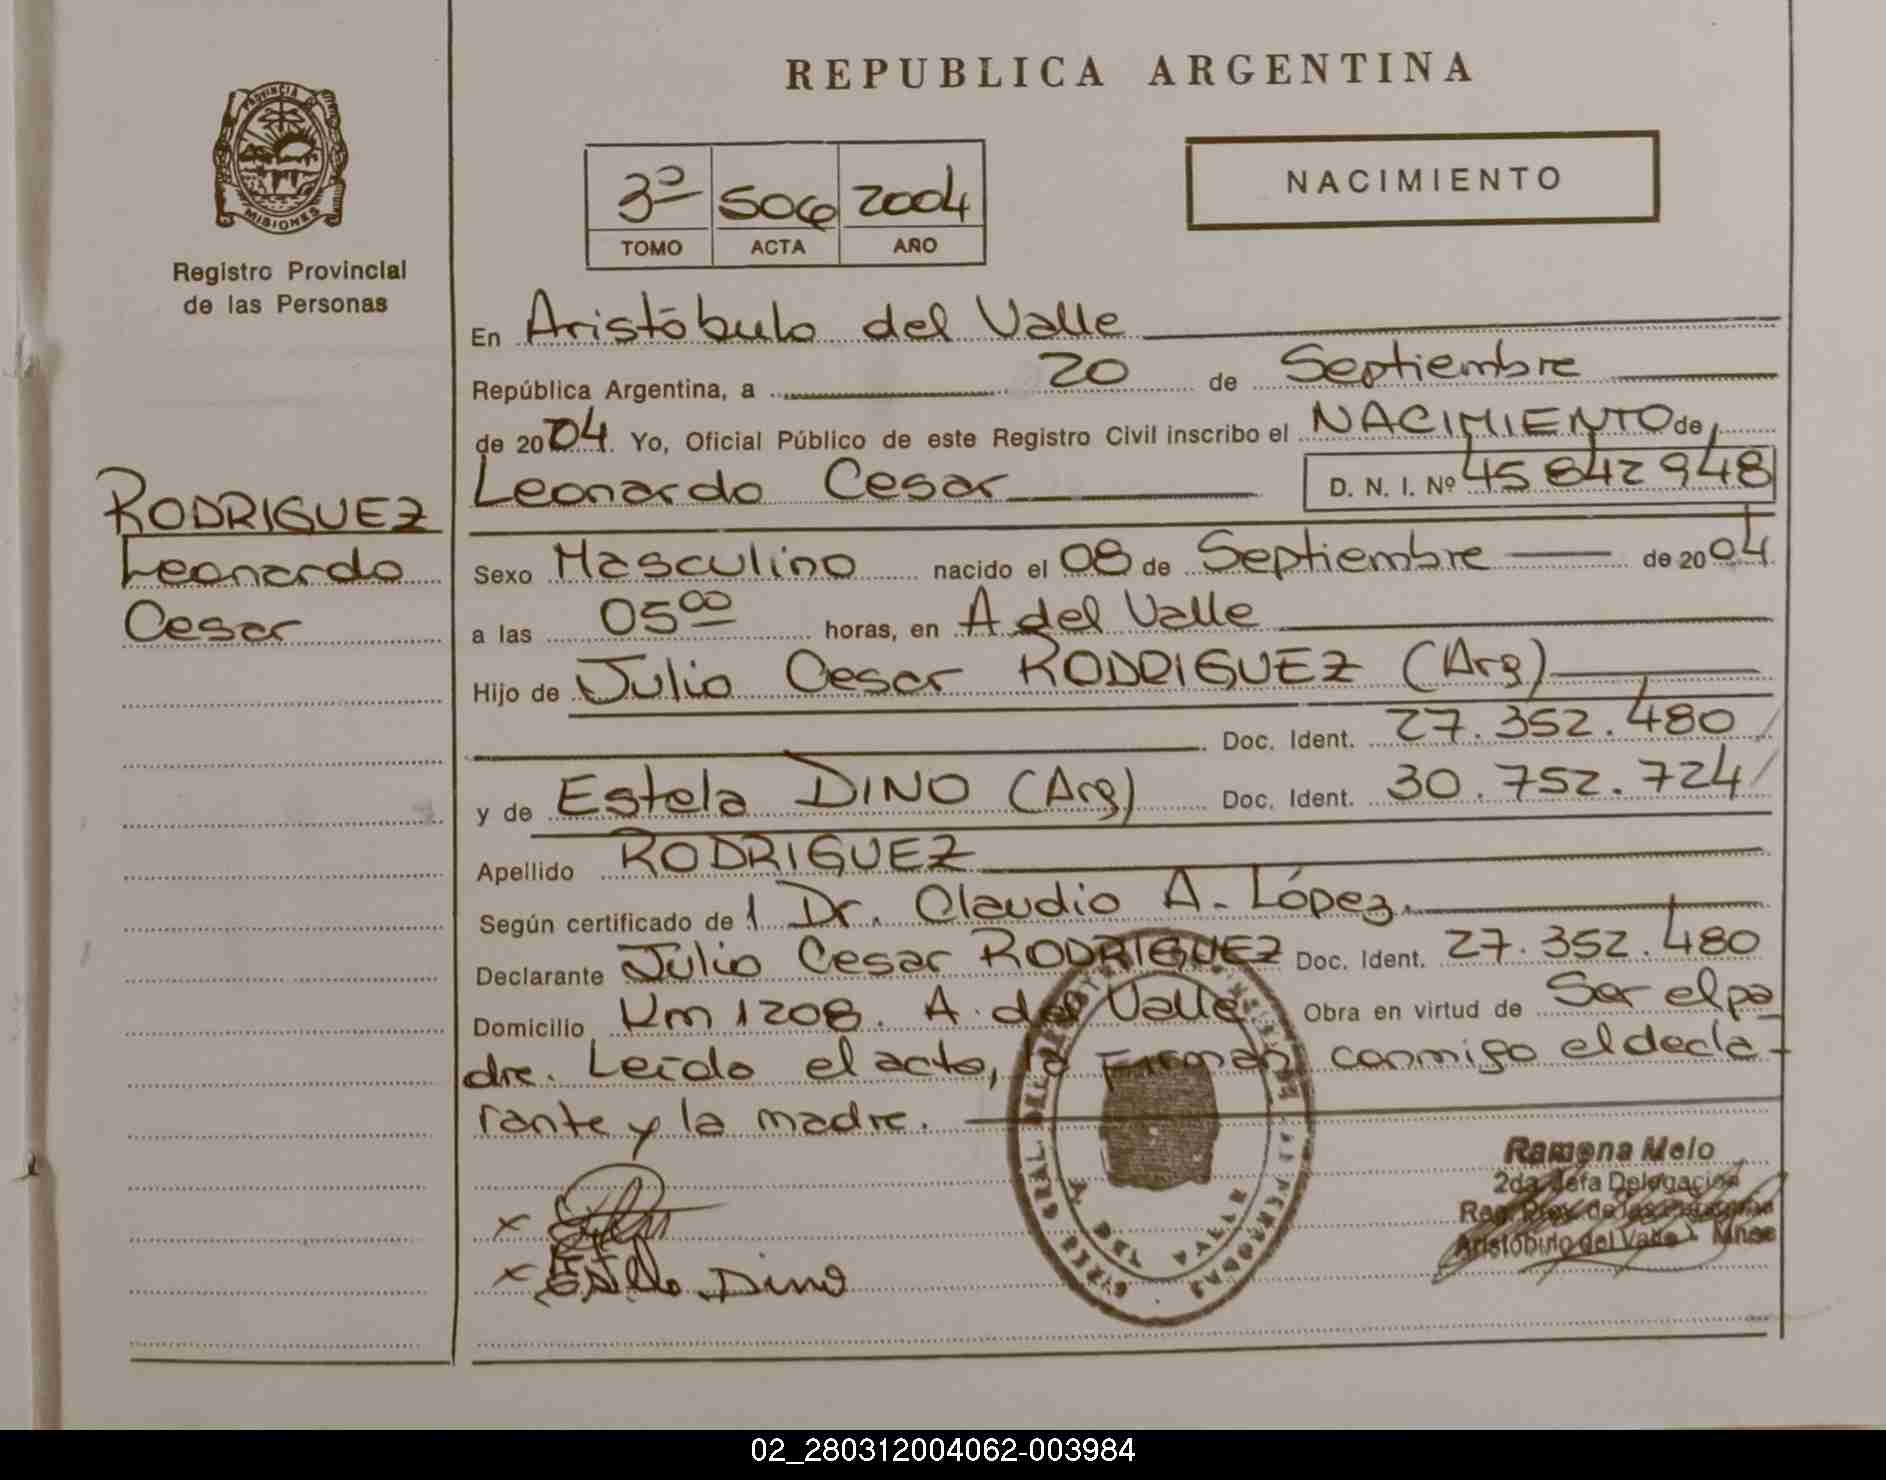 REPUBLICA ARGENTINA
PROVINCIA DE
MISIONES
Registro Provincial
de las Personas
3º 506 2004
TOMO ACTA AÑO
NACIMIENTO
En Aristóbulo del Valle
República Argentina, a 20 de Septiembre
de 2004. Yo, Oficial Público de este Registro Civil inscribo el NACIMIENTO de
Leonardo Cesar D. N. I. Nº 45842948
RODRIGUEZ
Leonardo
Cesar
Sexo Masculino nacido el 08 de Septiembre de 2004
a las 05⁰⁰ horas, en A del Valle
Hijo de Julio Cesar RODRIGUEZ (Arg)
Doc. Ident. 27.352.480
y de Estela DINO (Arg) Doc. Ident. 30.752.724
Apellido RODRIGUEZ
Según certificado de 1 Dr. Claudio A. López.
Declarante Julio Cesar RODRIGUEZ Doc. Ident. 27.352.480
Domicilio Km 1208. A. del Valle Obra en virtud de Ser el pa
dre. Leído el acto, la Firman conmigo el decla-
rante y la madre.
Ramona Melo
2da. Jefa Delegación
Reg. Prov. de las Personas
Aristóbulo del Valle - Mnes
x
x Estela Dino
A. DEL VALLE
02_280312004062-003984